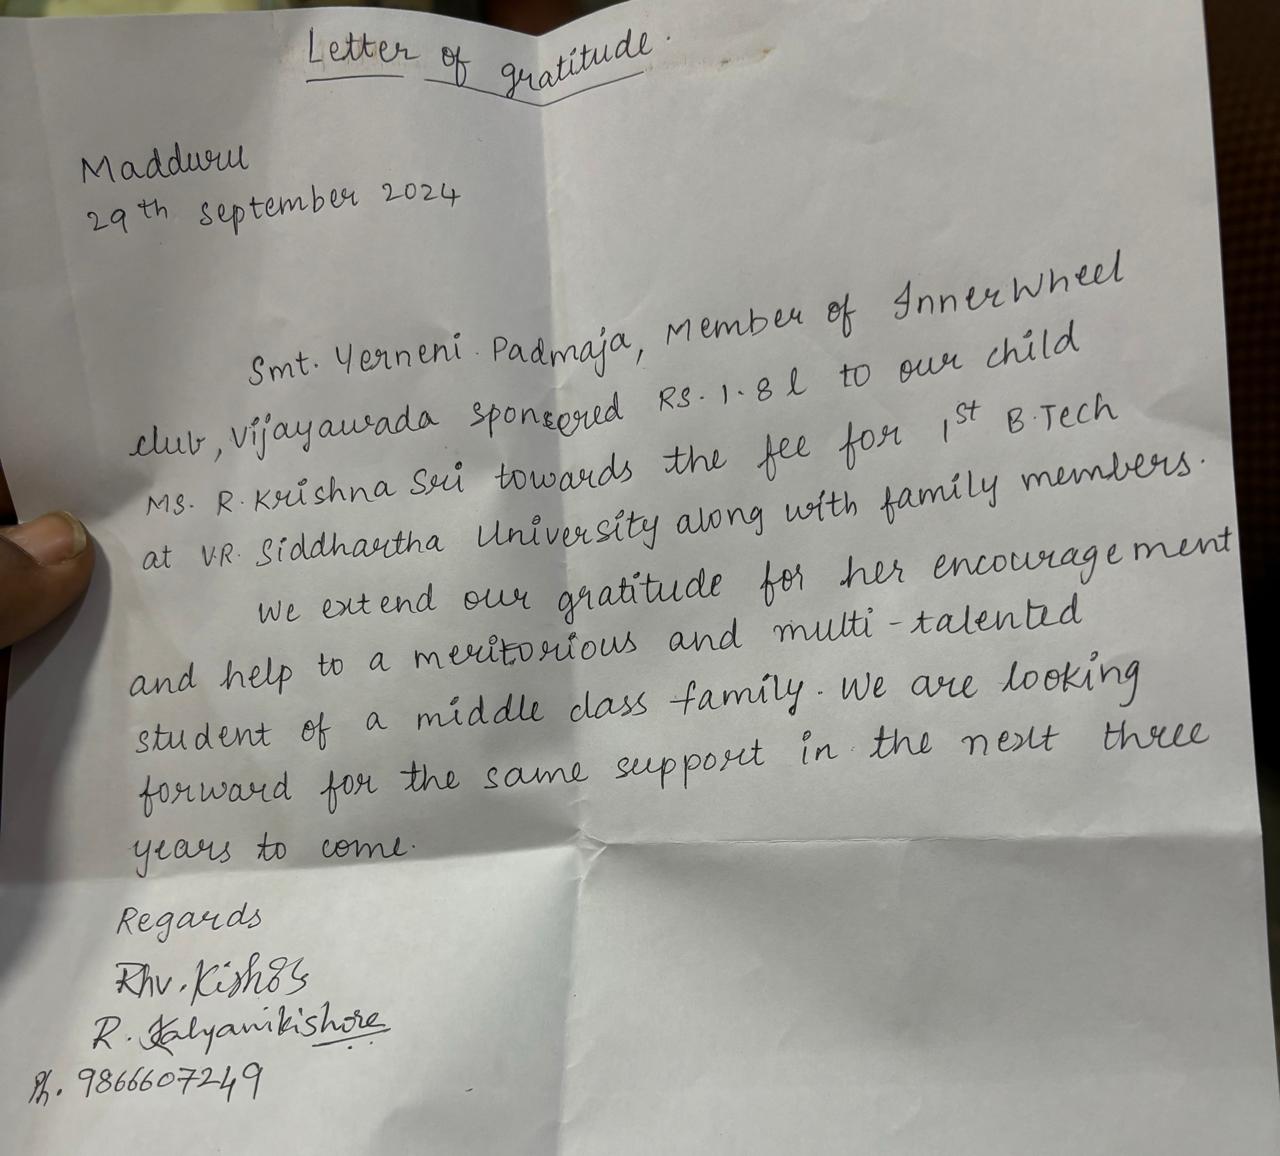 Letter of gratitude.
Madduru
29th september 2024
Smt. Yerneni. Padmaja, Member of InnerWheel
club, Vijayawada sponsered RS. 1.8 l to our child
MS. R. Krishna Sri towards the fee for 1st B.Tech
at V.R. Siddhartha University along with family members.
We extend our gratitude for her encouragement
and help to a meritorious and multi-talented
student of a middle class family. We are looking
forward for the same support in the next three
years to come.
Regards
Rhv. Kishore
R. Kalyanikishore
Ph. 9866607249